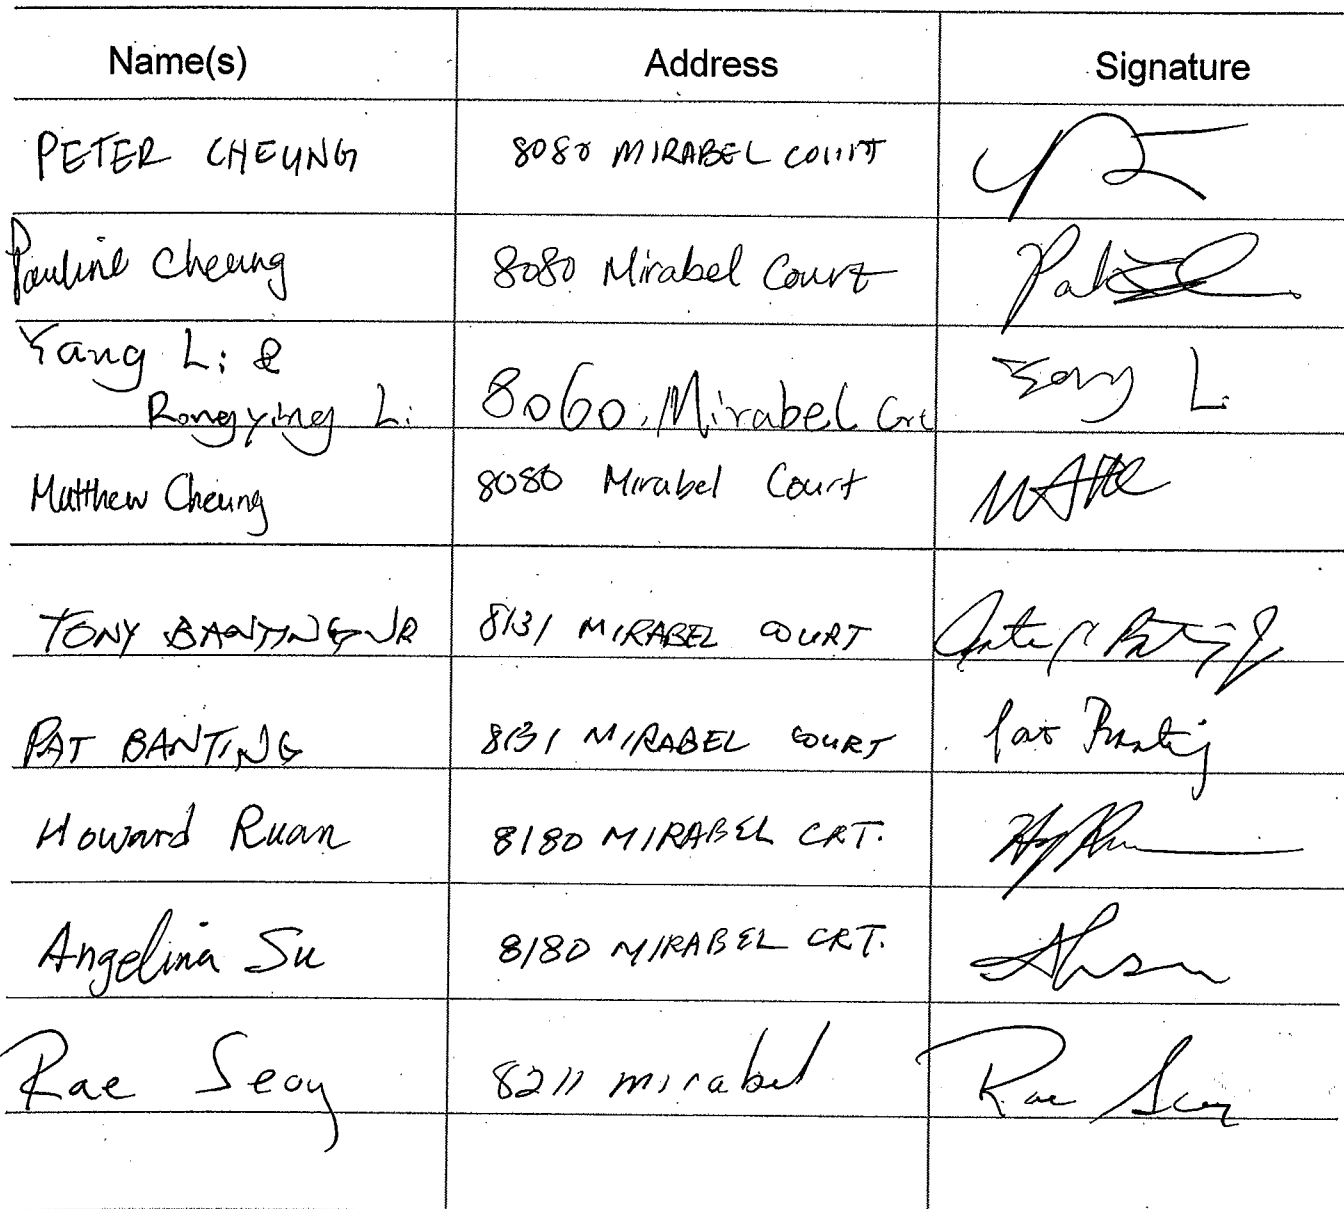 Name(s) Address Signature
PETER CHEUNG 8080 MIRABEL COURT
Pauline Cheung 8080 Mirabel Court
Yang Li &
Rongying Li 8060, Mirabel Crt Yang Li
Matthew Cheung 8080 Mirabel Court
TONY BANTING JR 8131 MIRABEL COURT
PAT BANTING 8131 MIRABEL COURT Pat Banting
Howard Ruan 8180 MIRABEL CRT.
Angelina Su 8180 MIRABEL CRT.
Rae Seoy 8211 mirabel Rae